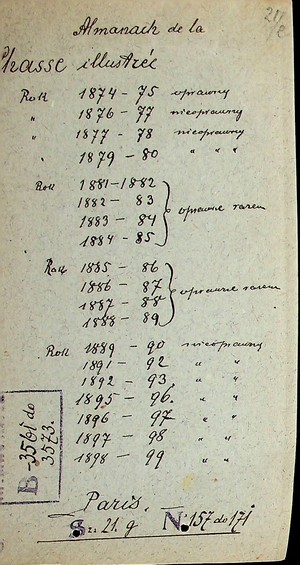 211/2
Almanach de la
Chasse illustrée
Rok 1874 – 75 oprawny
" 1876 – 77 nieoprawny
" 1877 – 78 nieoprawny
" 1879 – 80 " " "
Rok 1881 – 1882
1882 – 83
1883 – 84
1884 – 85
oprawne razem
Rok 1885 – 86
1886 – 87
1887 – 88
1888 – 89
oprawne razem
Rok 1889 – 90 nieoprawny
1891 – 92 " "
1892 – 93 " "
1895 – 96. " "
1896 – 97 " "
1897 – 98 " "
1898 – 99 " "
B -3561 do
3573.
Paris.
Sz. 21. g N. 157 do 171